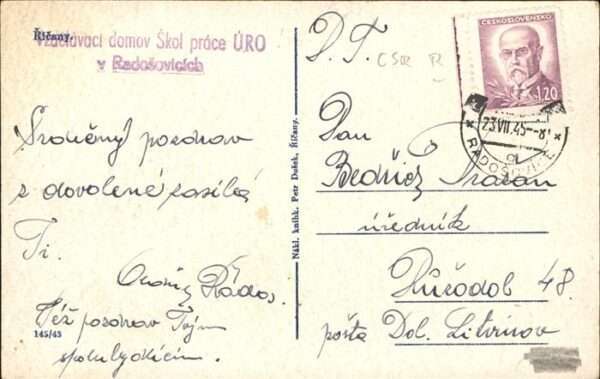 Říčany.
Vzdělávací domov Škol práce ÚRO
v Radošovicích
Srdečný pozdrav
z dovolené zasílá
Ti.
Ondřej
Též pozdrav Tvým
spolubydlícím.
145/45
Nákl. knihk. Petr Dušek, Říčany.
D. T. ČSR
ČESKOSLOVENSKO
1,20
23.VII.45.-8
RADOŠOVICE
Pan
Bedřich
úředník
Růžodol 48.
pošta Dol. Litvínov